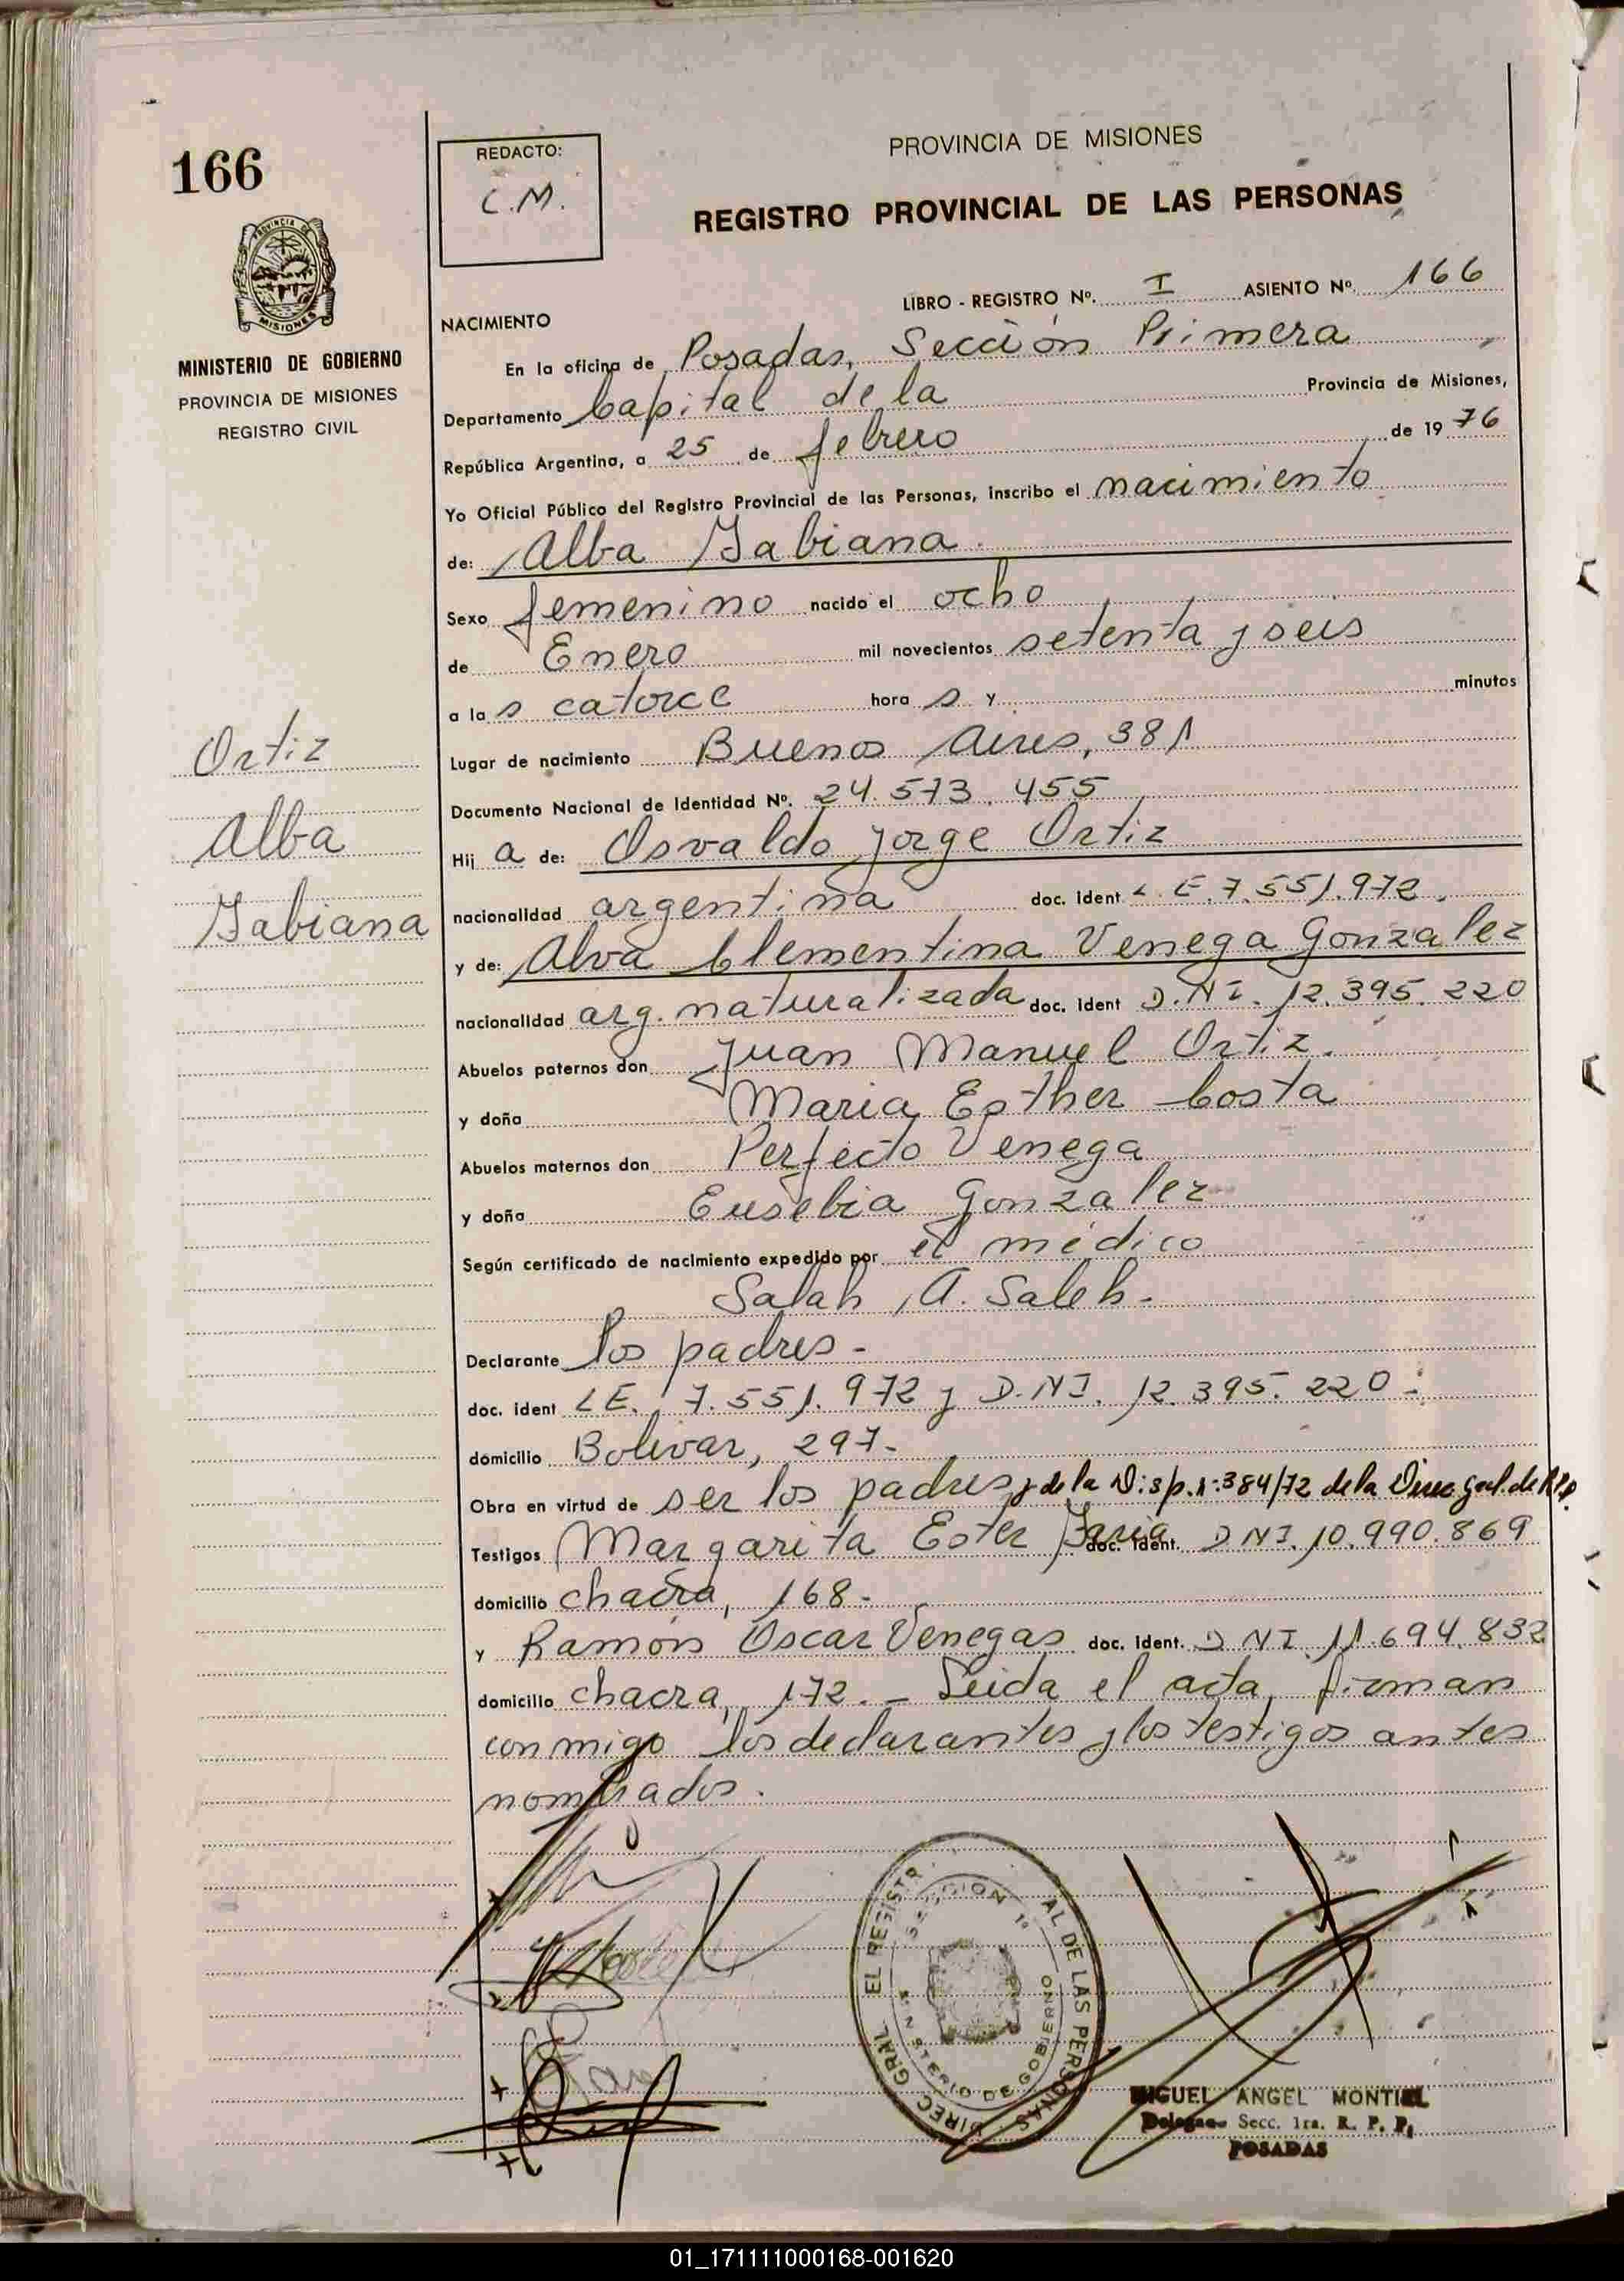 166
REDACTO:
C.M.
PROVINCIA DE MISIONES
REGISTRO PROVINCIAL DE LAS PERSONAS
PROVINCIA DE
MISIONES
MINISTERIO DE GOBIERNO
PROVINCIA DE MISIONES
REGISTRO CIVIL
LIBRO - REGISTRO Nº. I ASIENTO Nº. 166
NACIMIENTO
En la oficina de Posadas, Sección Primera
Departamento Capital de la Provincia de Misiones,
República Argentina, a 25 de febrero de 1976
Yo Oficial Público del Registro Provincial de las Personas, inscribo el nacimiento
de: Alba Fabiana.
Sexo femenino nacido el ocho
de Enero mil novecientos setenta y seis
a las catorce horas y minutos
Lugar de nacimiento Buenos Aires, 381
Documento Nacional de Identidad Nº. 24.573.455
Hija de: Osvaldo Jorge Ortiz
nacionalidad argentina doc. ident L.E.7.551.972.
y de: Alva Clementina Venega Gonzalez
nacionalidad arg. naturalizada doc. ident D.N.I. 12.395.220
Abuelos paternos don Juan Manuel Ortiz.
y doña Maria Esther Costa
Abuelos maternos don Perfecto Venega
y doña Eusebia Gonzalez
Según certificado de nacimiento expedido por el médico
Salah, A. Saleh.-
Declarante los padres -
doc. ident L.E. 7.551.972 y D.N.I. 12.395.220.-
domicilio Bolivar, 297-
Obra en virtud de ser los padres y de la Disp. 384/72 de la Direc. Gral. de R.P.P.
Testigos Margarita Ester Faria doc. ident. D.N.I. 10.990.869
domicilio chacra, 168.-
y Ramón Oscar Venegas doc. ident. D.N.I. 11.694.832
domicilio chacra, 172.- Leida el acta, firman
conmigo los declarantes y los testigos antes
nombrados.
Ortiz
Alba
Fabiana
DIREC. GRAL. EL REGISTR AL DE LAS PERSONAS
SECCION 1ª
MINISTERIO DE GOBIERNO
MIGUEL ANGEL MONTIEL
Secc. 1ra. R. P. P.
POSADAS
01_171111000168-001620